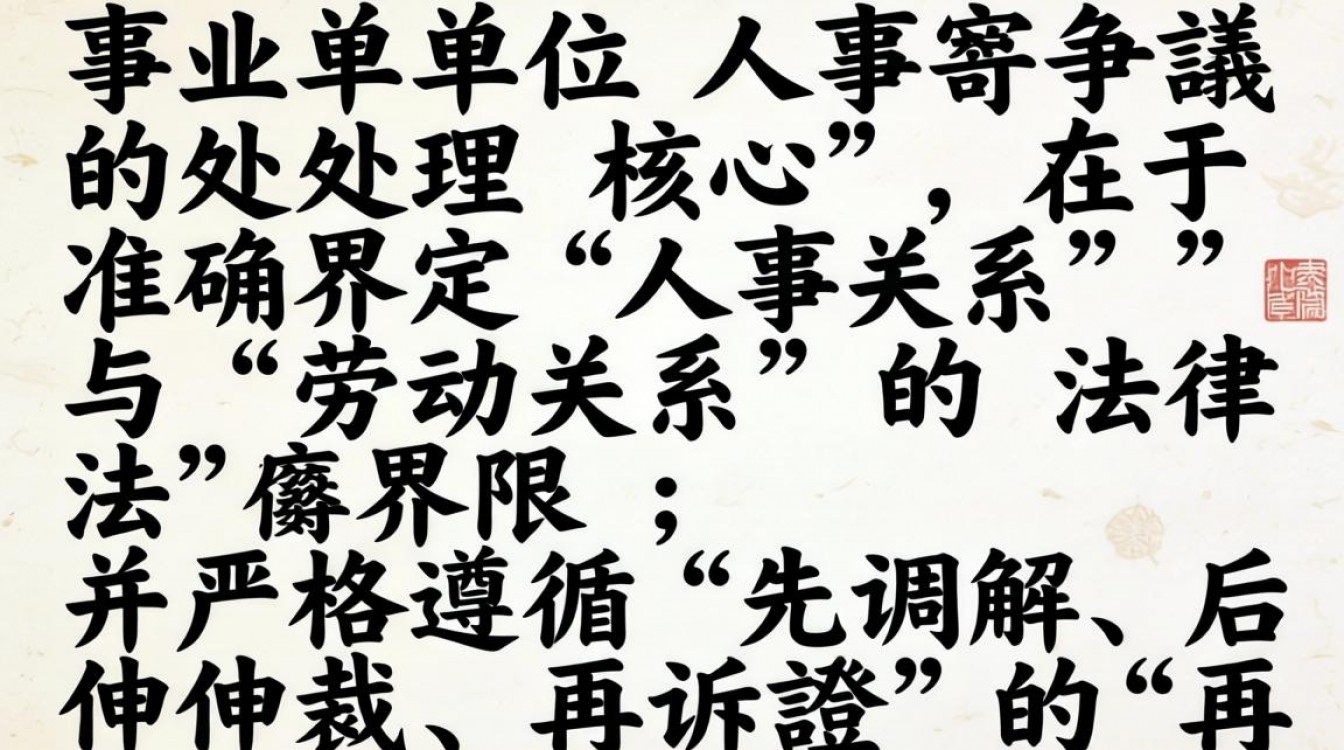 事业单单位 人事寄争議
的处处理 核心”，在于
准确界定“人事关系””
与“劳动关系”的 法律
法”界限；
并严格遵循“先调解、后
伸伸裁、再诉證”的“再